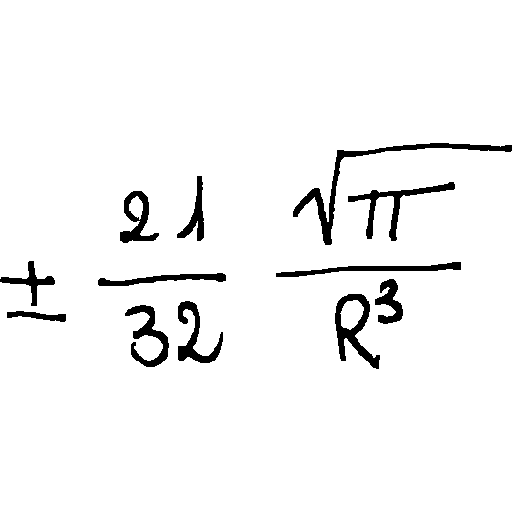 ± \frac{21}{32} \frac{\sqrt{π}}{R^3}